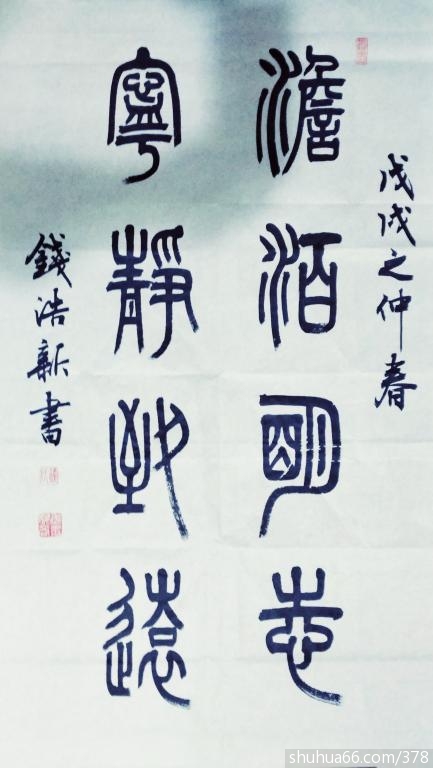 戊戌之仲春
澹泊明志
寧靜致遠
錢浩新書
shuhua66.com/378